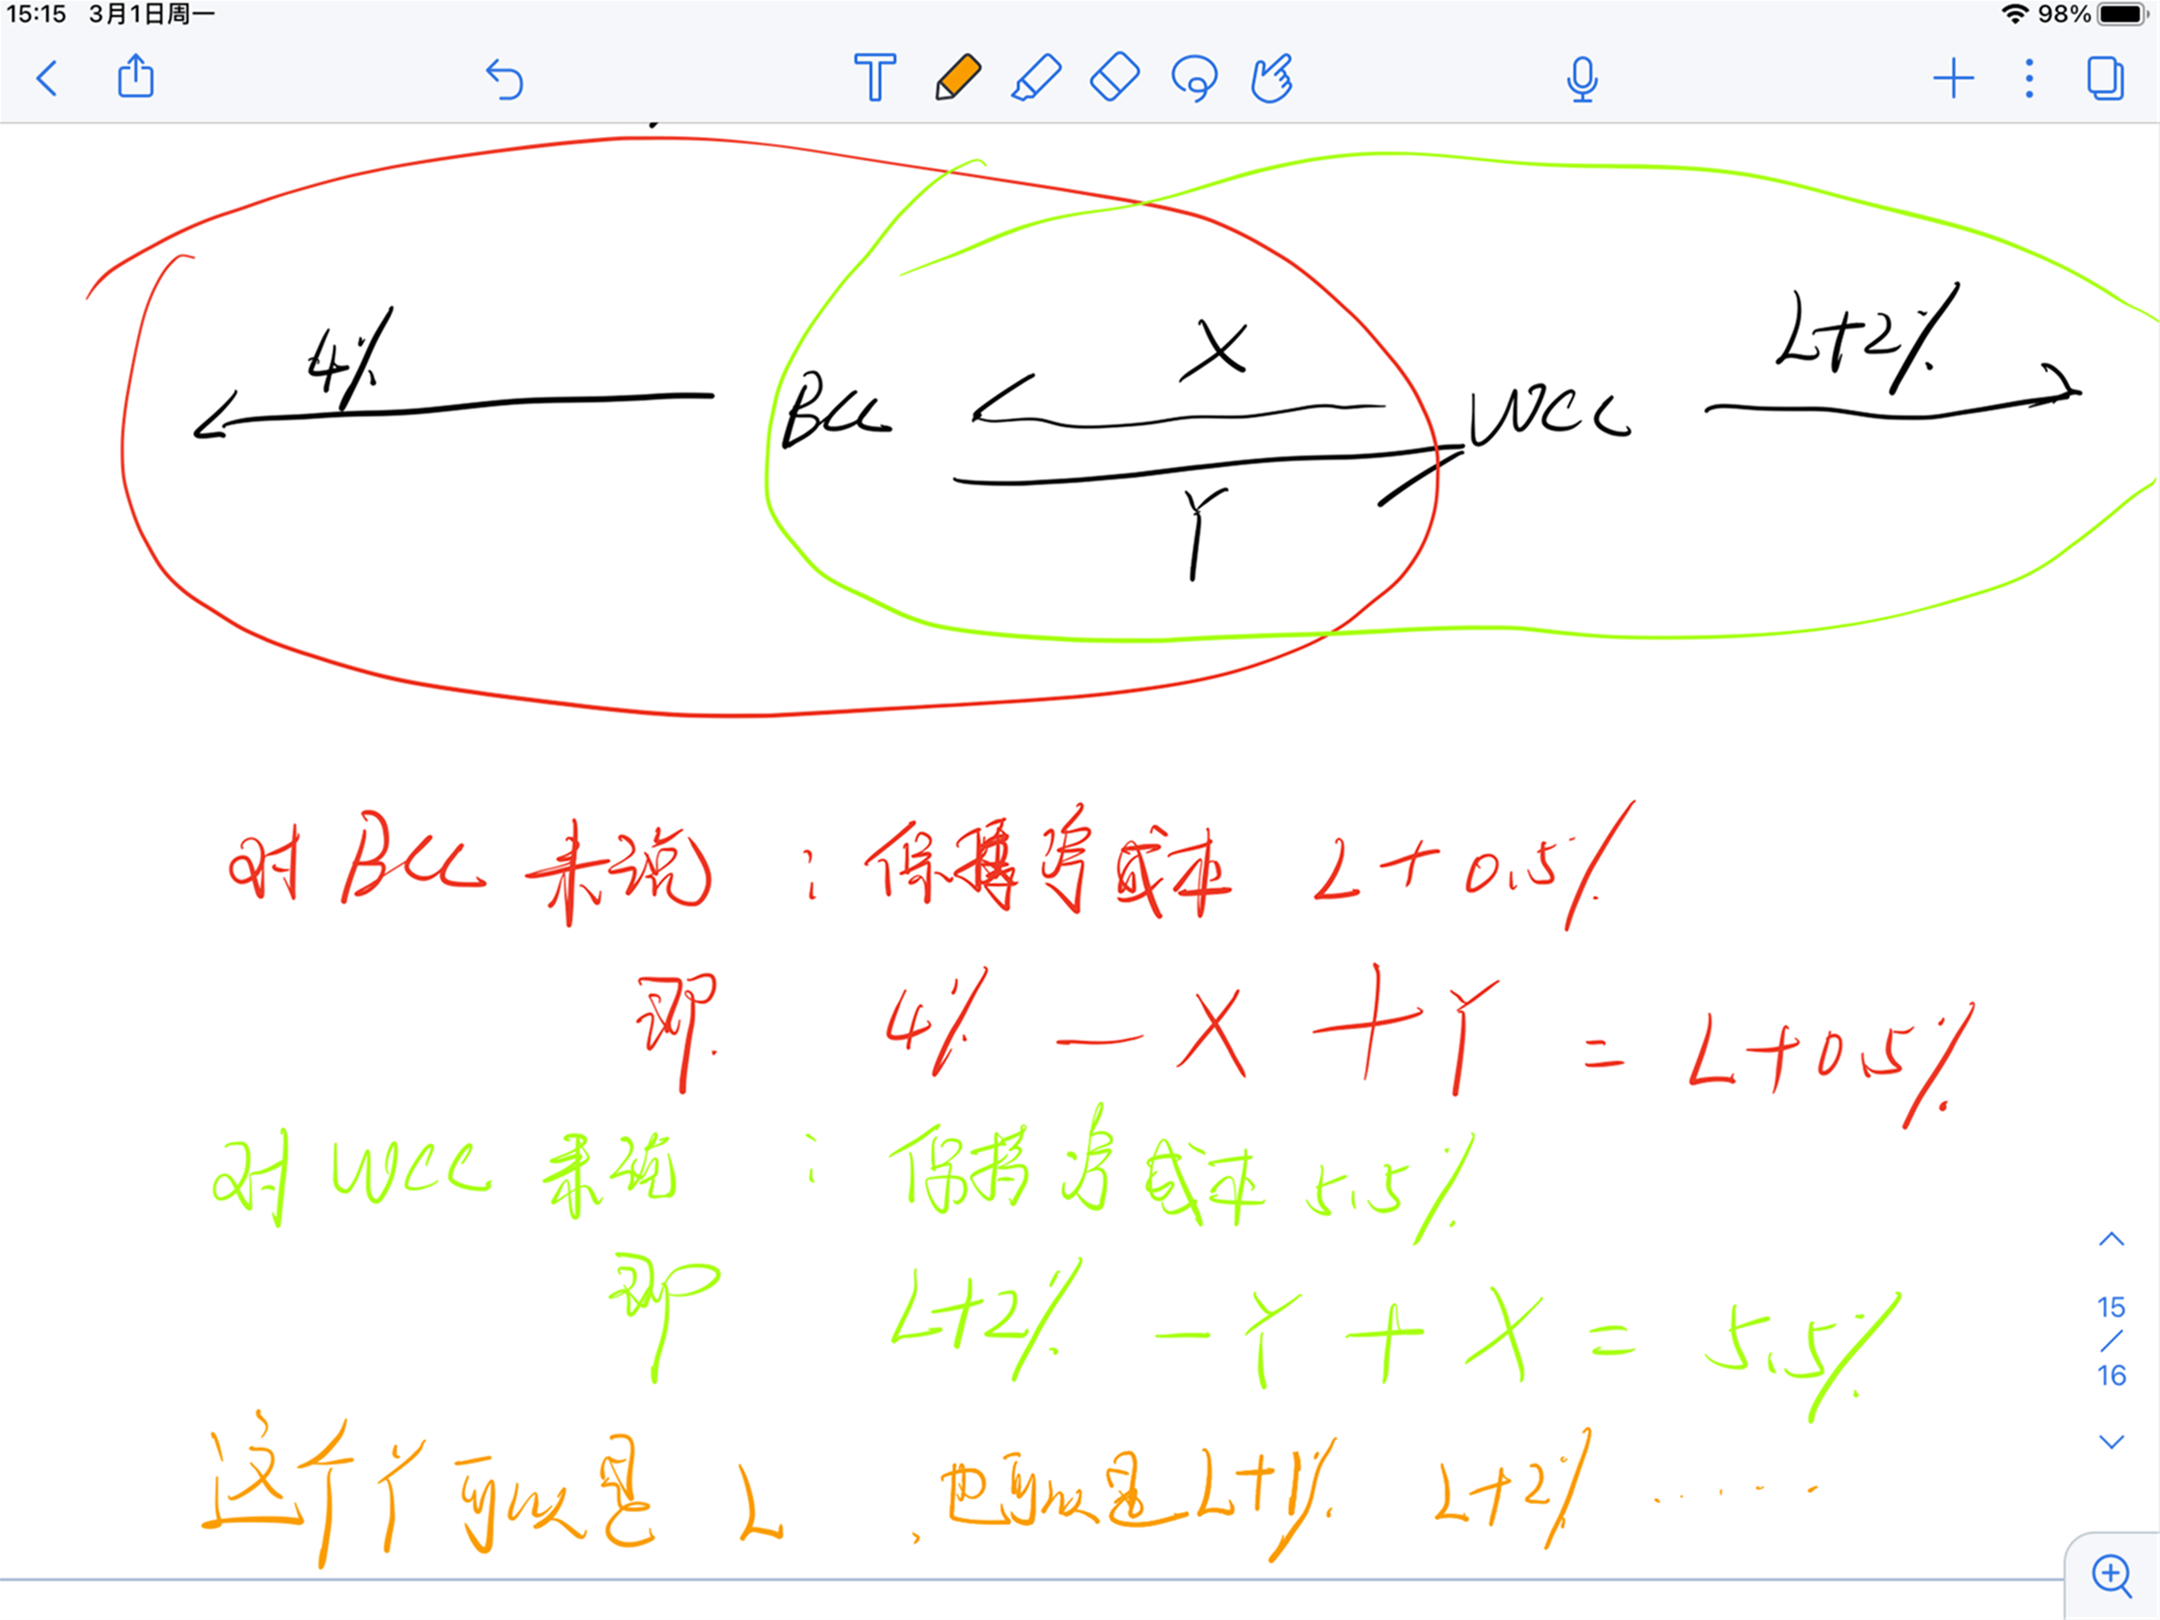 15:15 3月1日周一 98%
4% X L+2%
BCC WCC
Y
对 BCC 来说: 保持筹成本 L+0.5%
即. 4% — X + Y = L+0.5%
对 WCC 来说: 保持筹成本 5.5%
即 L+2% — Y + X = 5.5%
这个 Y 可以是 L , 也可以是 L+1% L+2% ......
15
/
16